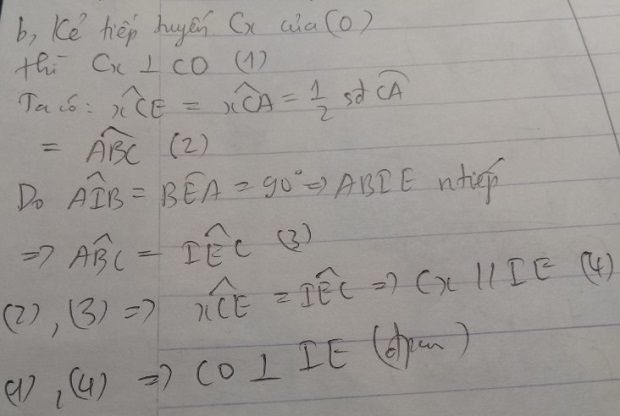 b, Kẻ tiếp tuyến Cx của (O)
thì Cx ⊥ CO (1)
Ta có: x̂CE = x̂CA = 1/2 sđ CA
= ABC (2)
Do AIB = BEA = 90° => ABIE ntiếp
=> ABC = IEC (3)
(2), (3) => xCE = IEC => Cx // IE (4)
(1), (4) => CO ⊥ IE (đpcm)